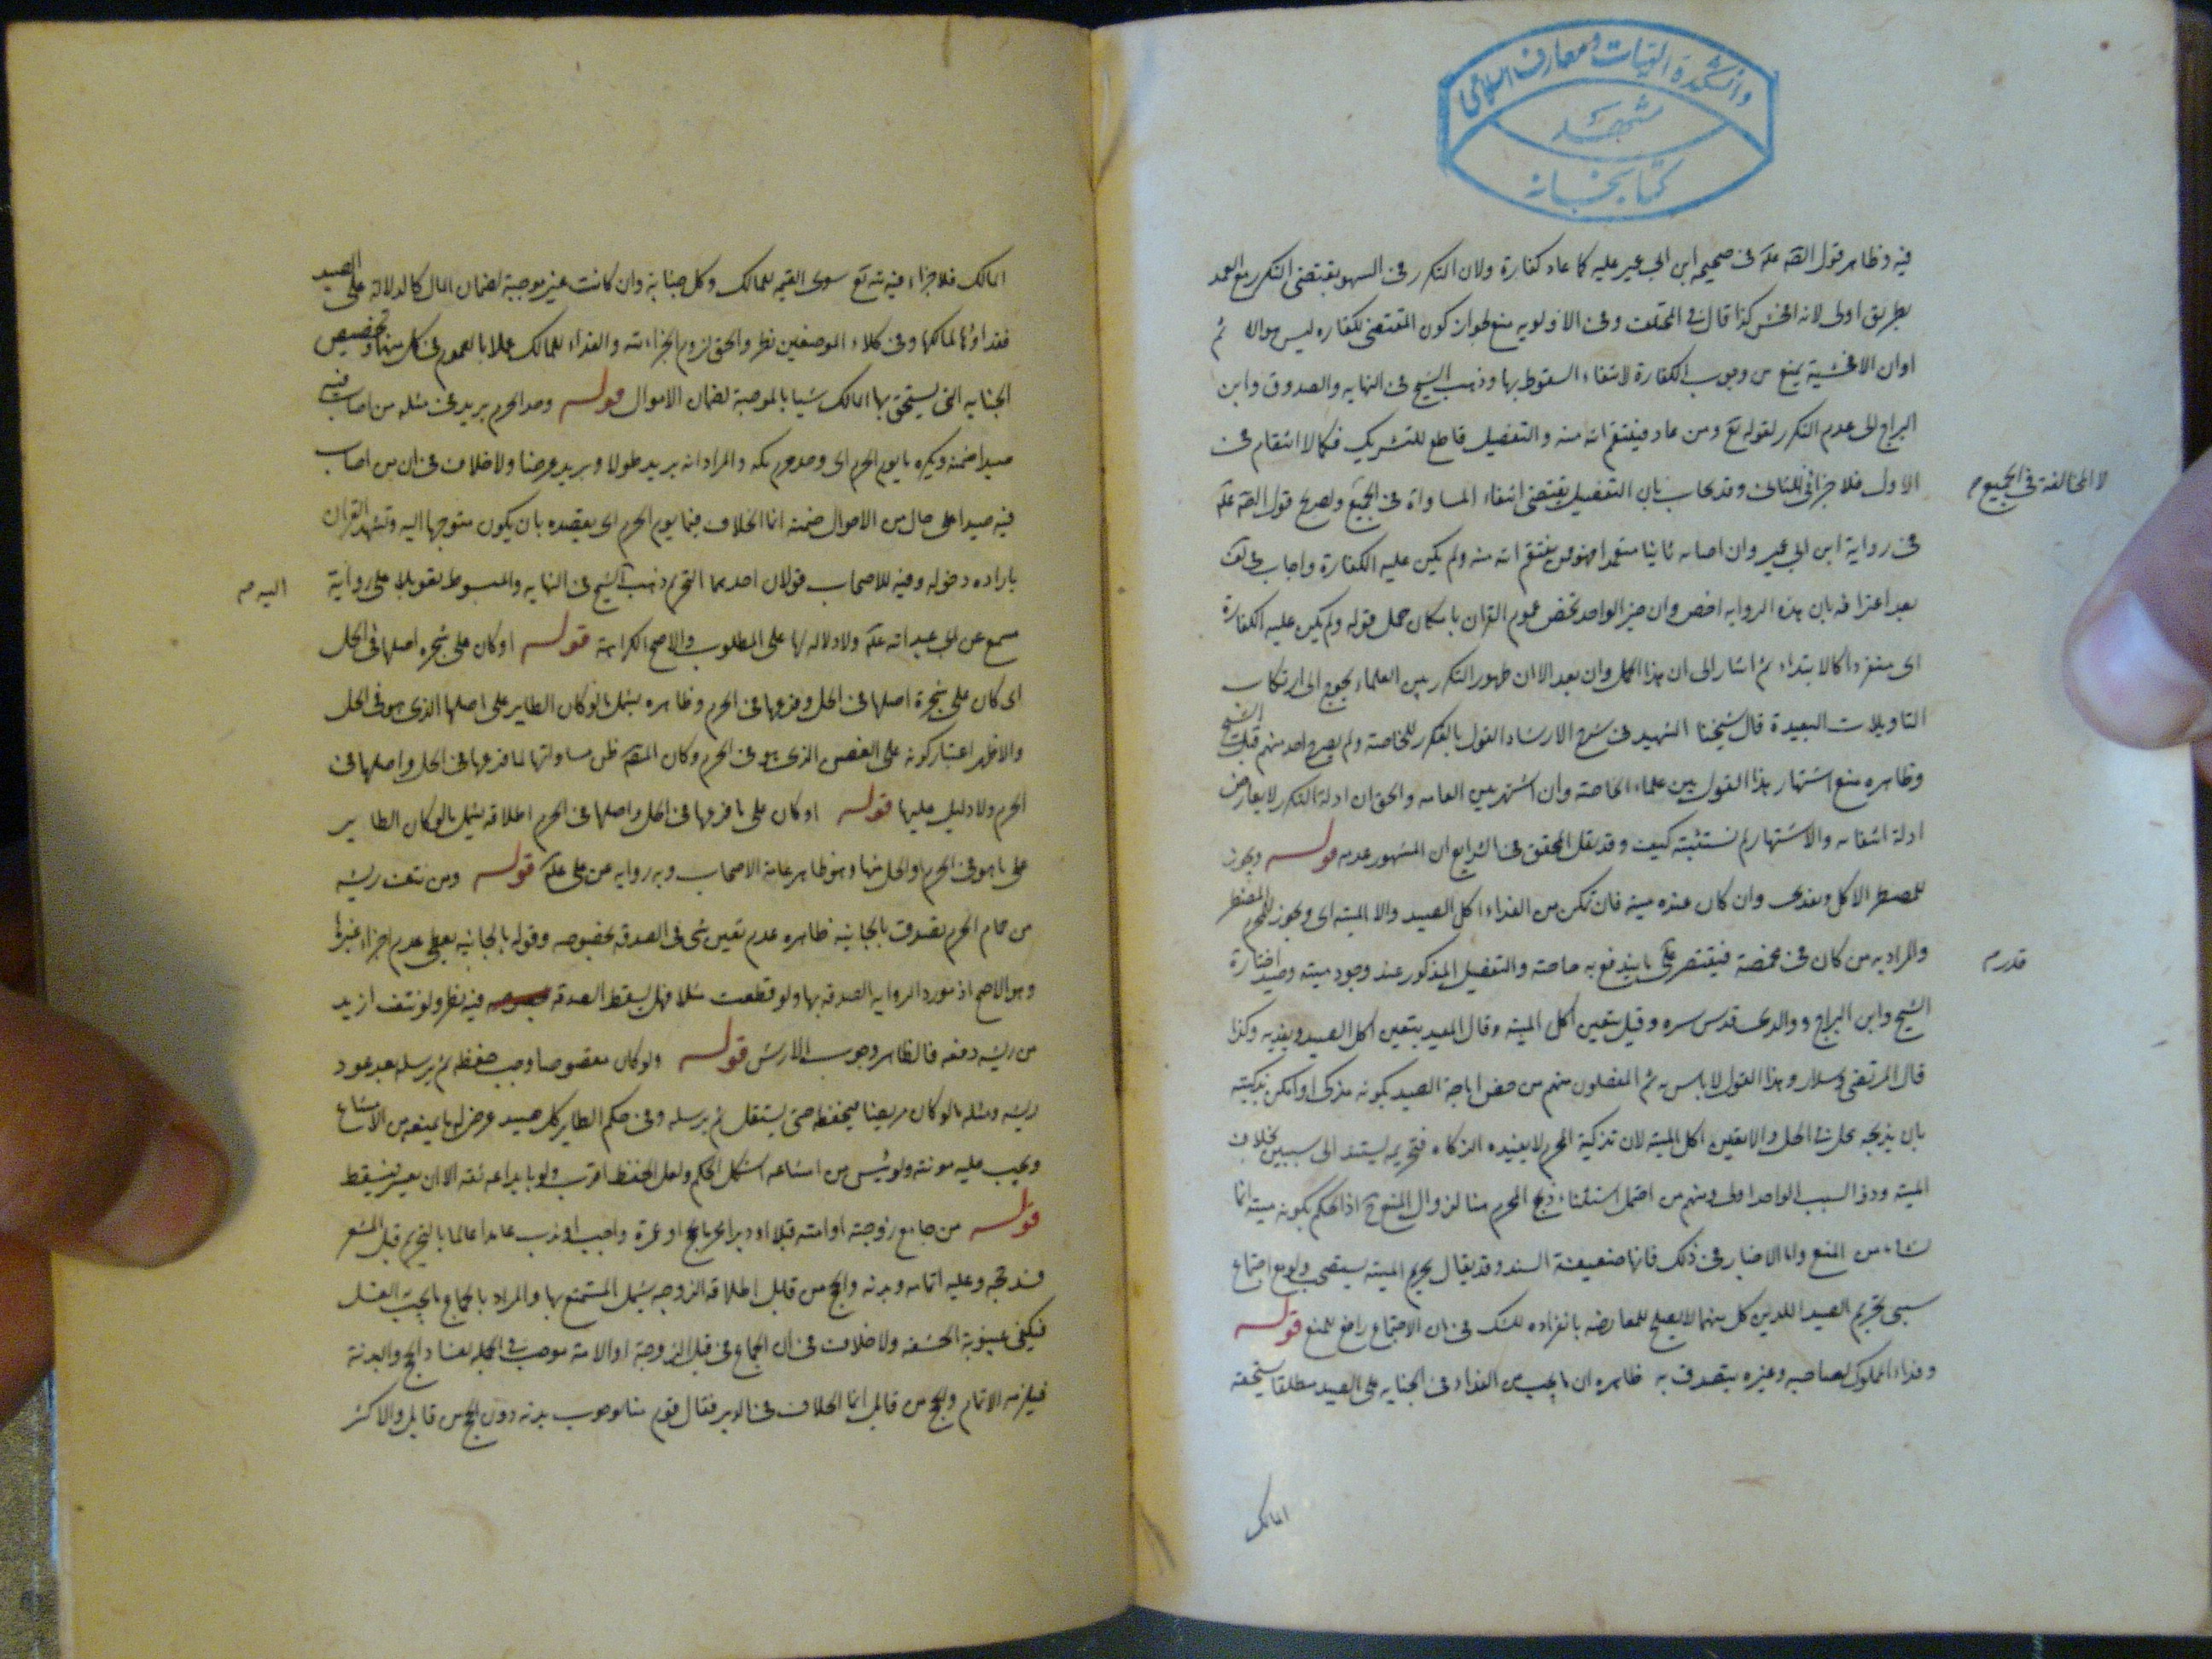 دانشکده الهیات و معارف اسلامی
مشهد
کتابخانه
فیه و ظاهر قول الصّ علیه فی صحیحه ابن ابی عمیر علیه کلما عاد کفارة ولان التکرر فی السهو یقتضی التکرر مع العمد
بطریق اولی لانه افحش کذا قال فی المختلف وفی الاولویه منع لجواز کون المقتضی للکفاره لیس هو الا ثم
او ان الافحشیة یمنع من وجوب الکفارة لانتفاء السقوط بها وذهب الشیخ فی النهایه والصدوق وابن
البراج الی عدم التکرر لقوله تع ومن عاد فینتقم الله منه والتفصیل قاطع للتشریک فکما لا انتقام فی
الاول فلا جزاء فی الثانی وقد یجاب بان التفصیل یقتضی انتفاء المساواة فی الجمیع وتصریح قول الصّ علیه
لا المخالفة فی الجمیع م
فی روایة ابن ابی عمیر وان اصابه ثانیا متعمدا فهو ممن ینتقم الله منه ولم یکن علیه الکفارة واجاب فی لف
بعد اعترافه بان هذه الروایه اخص وان خبر الواحد یخص عموم القران بامکان حمل قوله ولم یکن علیه الکفارة
ای منفردا کالابتداء ثم اشار الی ان هذا الحمل وان بعد الا ان ظهور التکرر بین العلماء یحوج الی ارتکاب
التاویلات البعیدة قال شیخنا الشهید فی شرح الارشاد القول بالتکرر للخاصة ولم یصرح احد منهم قبل الشیخ
وظاهره منع اشتهار هذا القول بین علماء الخاصة وان اشتهر بین العامه والحق ان ادلة التکرر لا یعارض
ادلة انتفائه والاشتهار لم نستثبته کیف وقد نقل المحقق فی الشرایع ان المشهور عدمه قوله ویجوز
للمضطر الاکل ویفدی وان کان عنده میته فان تمکن من الفداء اکل الصید والا المیته ای ویجوز للمحرم المضطر
والمراد به من کان فی مخمصة فیقتصر علی ما یندفع به حاجته والتفصیل المذکور عند وجود میته وصید اختارة
قدرم
الشیخ وابن البراج ووالدی قدس سره وقیل یتعین اکل المیته وقال المفید یتعین اکل الصید ویفدیه وکذا
قال المرتضی وسلار وهذا القول لا باس به ثم المفصلون منهم من خص اباحة الصید بکونه مذکی او امکن تذکیته
بان یذبحه محل فی الحل والا یقین اکل المیته لان تذکیة المحرم لا یفیده الذکاه فتحریمه یستند الی سببین بخلاف
المیته وذو السبب الواحد اولی ومنهم من احتمل استثناء ذبح المحرم هنا لزوال المنع ح اذ الحکم بکونه میته انما
نشاء من المنع واما الاخبار فی ذلک فانها ضعیفة السند وقد یقال تحریم المیته یستصحب ولو مع اجتماع
سببی تحریم الصید اللذین کل منهما لا یصلح للمعارضه بانفراده للشک فی ان الاجتماع رافع للمنع قوله
وفداء المملوک لصاحبه وغیره یتصدق به ظاهره ان ما یجب من الفداء فی الجنایه علی الصید مطلقا یستحقه
المالک
المالک فلا جزاء فیه لله تع سوی القیمه للمالک وکل جنایة وان کانت غیر موجبة لضمان المال کالدلالة علی الصید
ففداوها لمالکها وفی کلاء الموضعین نظر والحق لزوم الجزاء لله والفداء للمالک عملا بالعموم فی کل منهما وتخصیص
الجنایه التی یستحق بها المالک شیا بالموجبة لضمان الاموال قوله وحد الحرم برید فی مثله من اصاب فیه
صیدا ضمنه ویکره ما یؤم الحرم ای وحد حرم مکه والمراد انه برید طولا وبرید عرضا ولا خلاف فی ان من اصاب
فیه صیدا علی حال من الاحوال ضمنه انما الخلاف فیما یؤم الحرم ای یقصده بان یکون متوجها الیه وتشهد القران
باراده دخوله وفیه للاصحاب قولان احدهما التحریم ذهب الشیخ فی النهایه والمبسوط تعویلا علی روایة
الیه صه
مسمع عن ابی عبد الله علیه ولا دلاله لها علی المطلوب والاصح الکراهة قوله او کان علی شجره اصلها فی الحل
ای کان علی شجرة اصلها فی الحل وفرعها فی الحرم وظاهره یشمل ما لو کان الطایر علی اصلها الذی هو فی الحل
والاظهر اعتبار کونه علی الغصن الذی هو فی الحرم وکان المصّ ظن مساواتها لما فرعها فی الحل واصلها فی
الحرم ولا دلیل علیها قوله او کان علی ما فرعها فی الحل واصلها فی الحرم اطلاقه یشمل ما لو کان الطایر
علی ما هو فی الحرم او الحل منها وهو ظاهر عامة الاصحاب وبه روایه عن علی علیه قوله ومن نتف ریشه
من حمام الحرم تصدق بالجانیه ظاهره عدم تعین شی فی الصدقه بخصوصه وقوله بالجانیه یعطی عدم اجزاء غیرها
وهو الاصح اذ مورد الروایه الصدقه بها ولو قطعت مثلا فهل یسقط الصدقه فیه نظر ولو نتف ازید
من ریشه دفعه فالظاهر وجوب الارش قوله ولو کان مقصوصا وجب حفظه ثم یرسله بعد عود
ریشه ومثله ما لو کان مریضا فیحفظه حتی یستقل ثم یرسله وفی حکم الطایر کل صید عرض له ما یمنعه من الامتناع
ویجب علیه مونته ولو یئس من امتناعه اشکل الحکم ولعل الحفظ اقرب ولو بایداعه ثقه الا ان یعسر فیسقط
قوله من جامع زوجته او امته قبلا او دبرا محرما بحج او عمرة واجب او ندب عامدا عالما بالتحریم قبل المشعر
فسد حجه وعلیه اتمامه وبدنه والحج من قابل اطلاقه الزوجه یشمل المستمتع بها والمراد بالجماع ما یجب الغسل
فیکفی غیبوبة الحشفه ولا خلاف فی ان الجماع فی قبل الزوجة او الامة موجب فی الجمله لفساد الحج والبدنة
فیلزمه الاتمام والحج من قابل انما الخلاف فی الدبر فقال قوم منا لوجوب بدنه دون الحج من قابل والاکثر